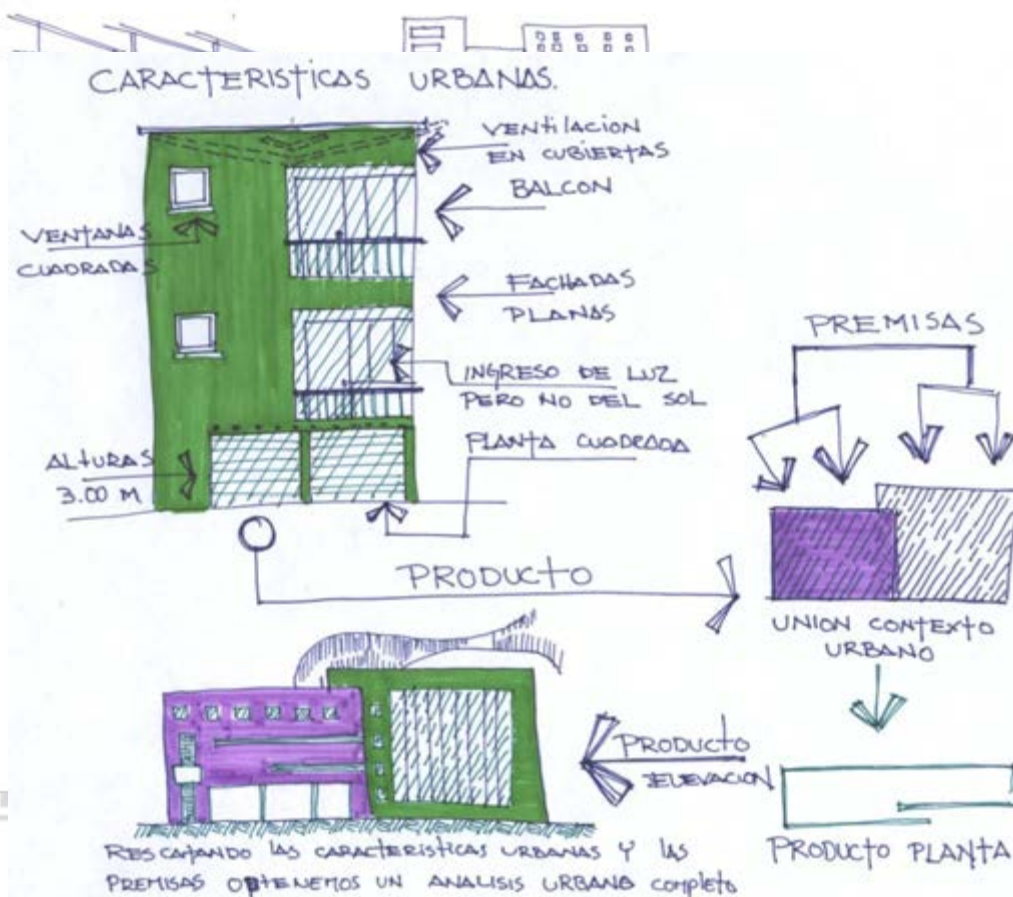 CARACTERISTICAS URBANAS.
VENTILACION
EN CUBIERTAS
BALCON
VENTANAS
CUADRADAS
FACHADAS
PLANAS
PREMISAS
INGRESO DE LUZ
PERO NO DEL SOL
PLANTA CUADRADA
ALTURAS
3.00 M
PRODUCTO
UNION CONTEXTO
URBANO
PRODUCTO
ELEVACION
PRODUCTO PLANTA
RESCATANDO LAS CARACTERISTICAS URBANAS Y LAS
PREMISAS OBTENEMOS UN ANALISIS URBANO COMPLETO